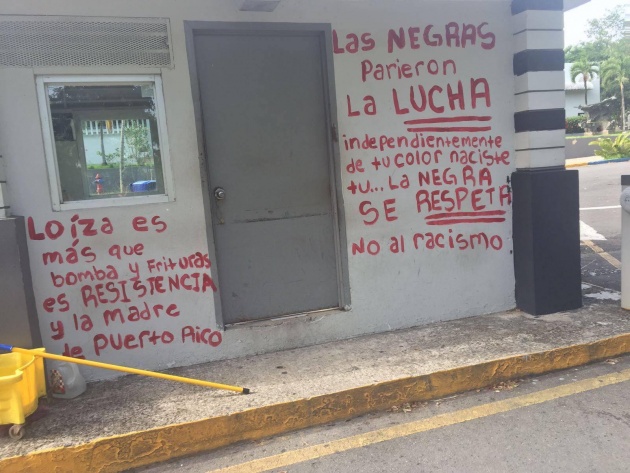 Loíza es
más que
bomba y Frituras
es RESISTENCIA
y la madre
de puerto Rico
Las NEGRAS
Parieron
La LUCHA
independientemente
de tu color naciste
tu... La NEGRA
SE RESPETA
No al racismo